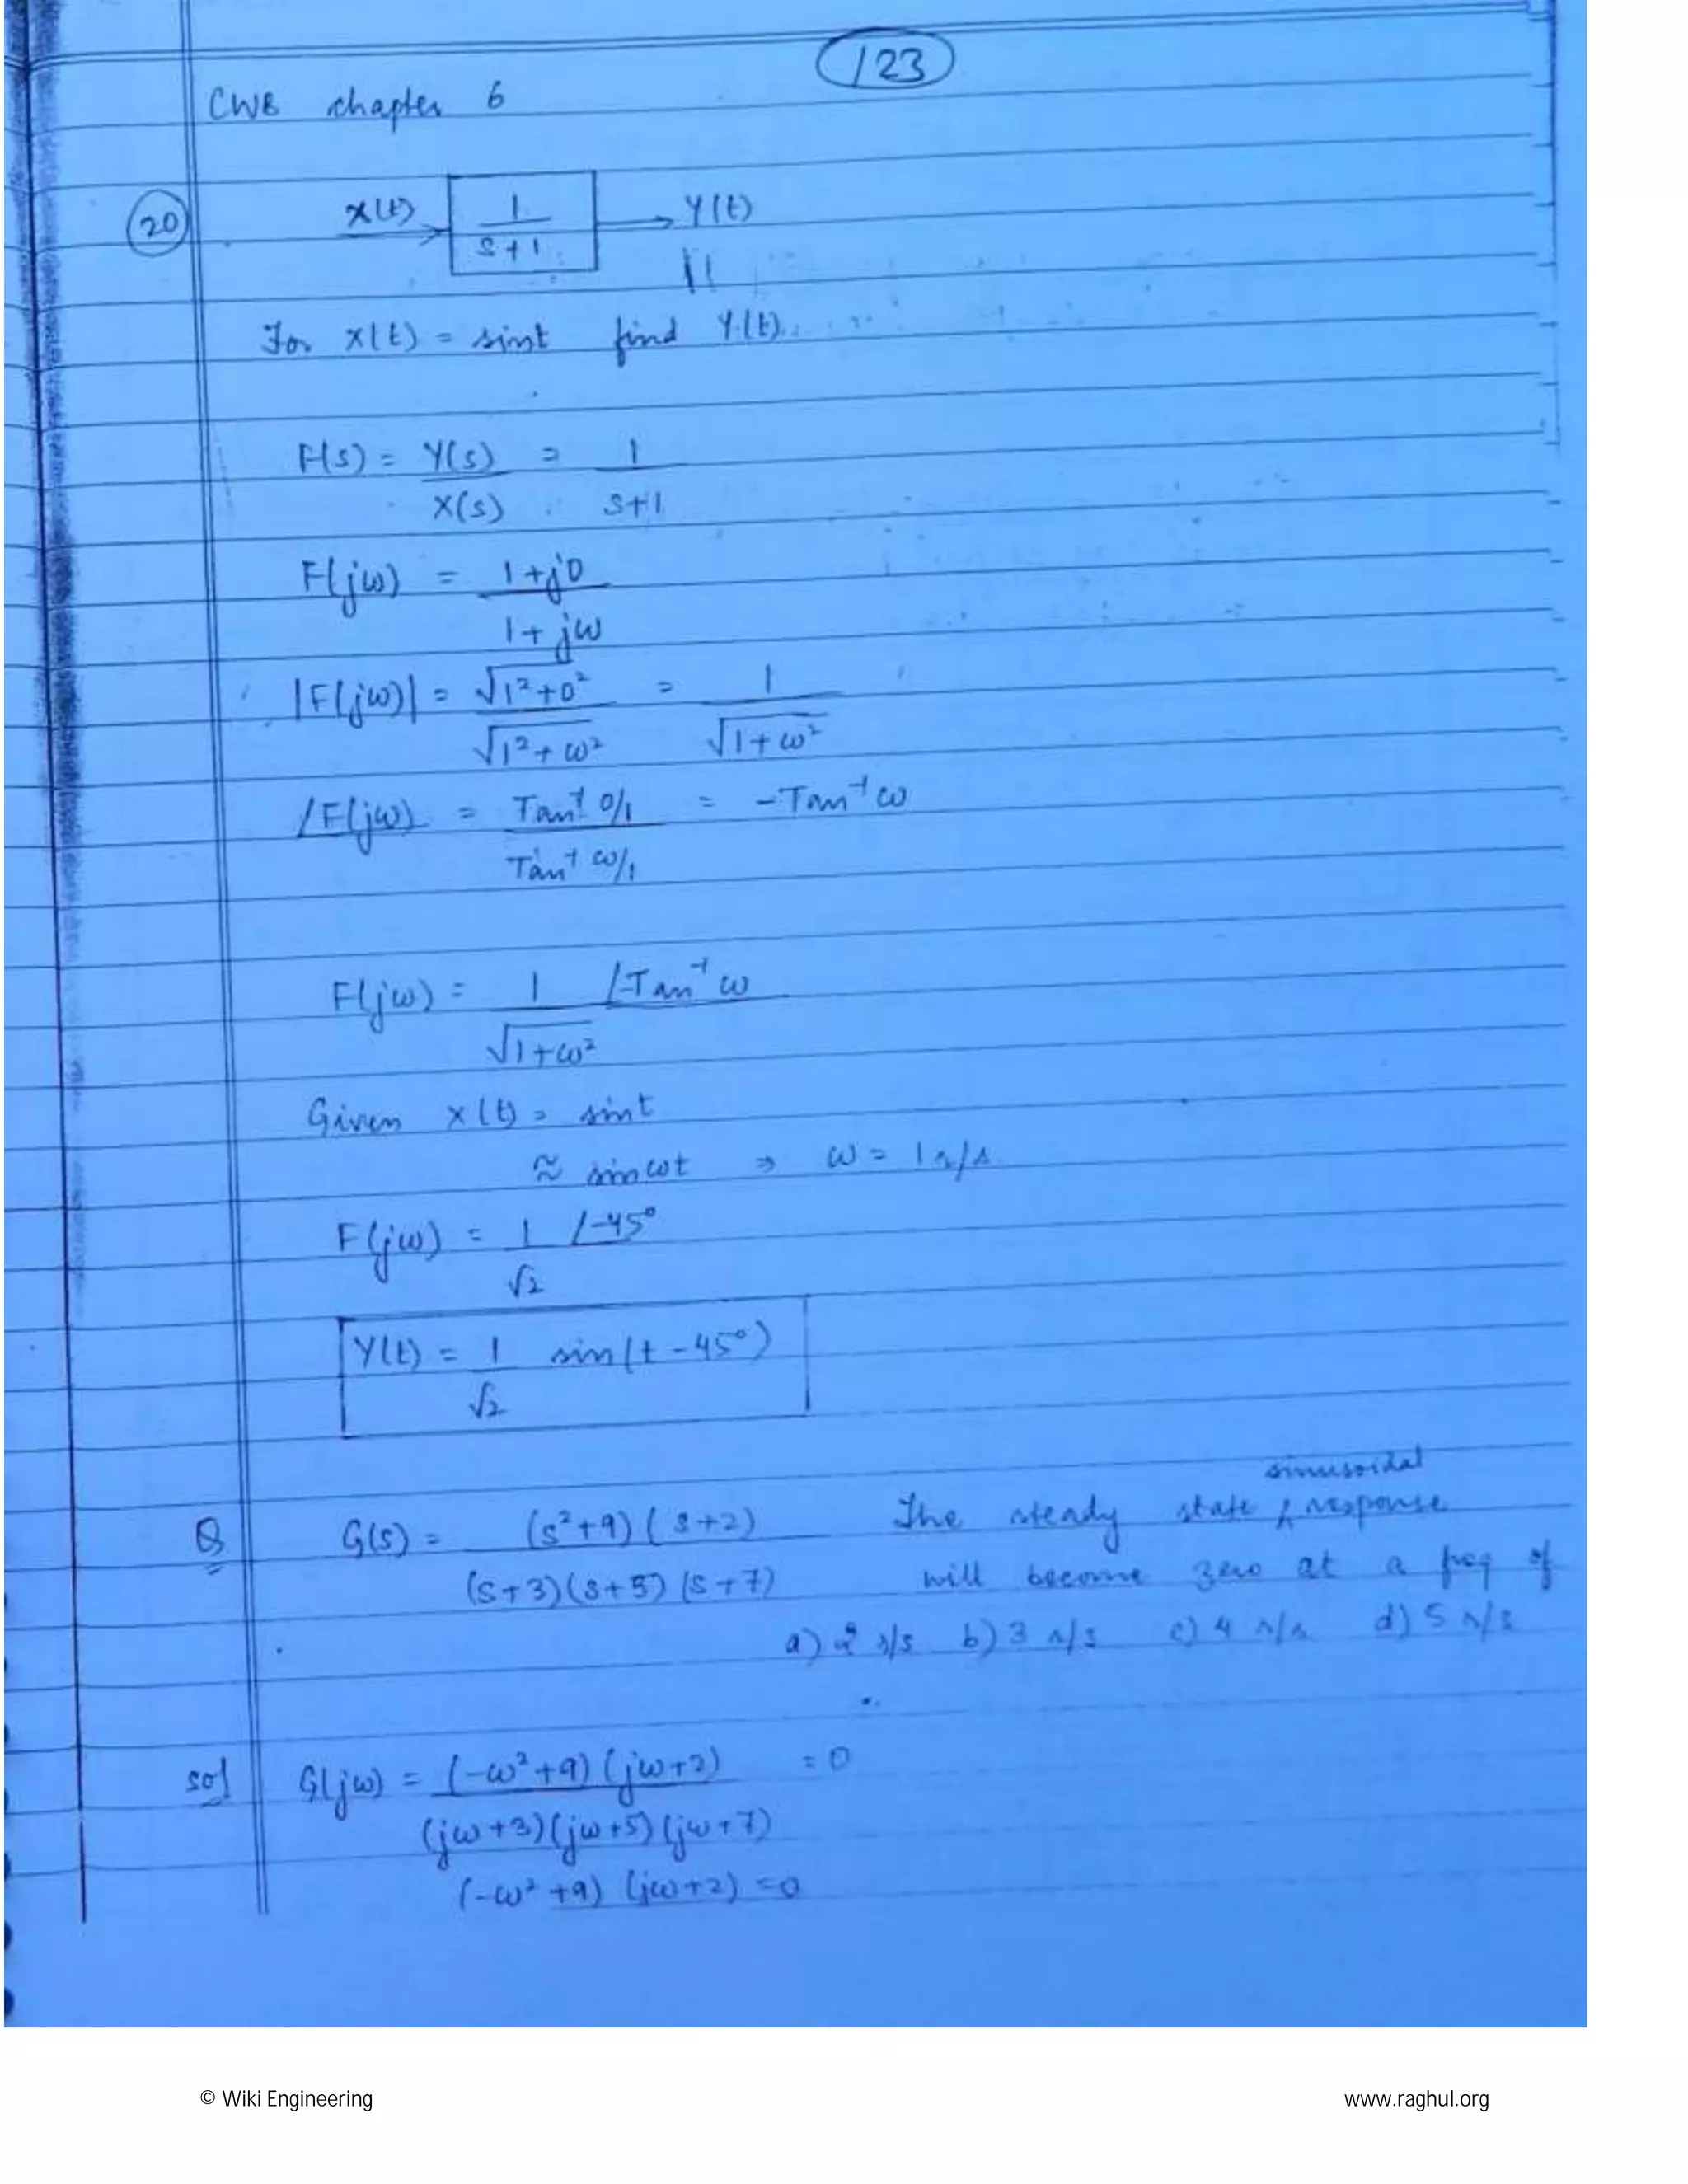 123
CWB chapter 6
20
x(t) 1 / s+1 Y(t)
For x(t) = sint find Y(t).
F(s) = Y(s) / X(s) = 1 / s+1
F(jω) = 1+j0 / 1+jω
|F(jω)| = √1²+0² / √1²+ω² = 1 / √1+ω²
∠F(jω) = Tan⁻¹ 0/1 / Tan⁻¹ ω/1 = -Tan⁻¹ ω
F(jω) = 1 / √1+ω² ∠-Tan⁻¹ ω
Given x(t) = sint
≈ sinωt ⇒ ω = 1 r/s
F(jω) = 1 / √2 ∠-45°
Y(t) = 1 / √2 sin(t - 45°)
Q G(s) = (s²+9)(s+2) / (s+3)(s+5)(s+7) The steady state sinusoidal response
will become zero at a freq of
a) 2 r/s b) 3 r/s c) 4 r/s d) 5 r/s
sol G(jω) = (-ω²+9)(jω+2) / (jω+3)(jω+5)(jω+7) = 0
(-ω²+9) (jω+2) = 0
© Wiki Engineering www.raghul.org